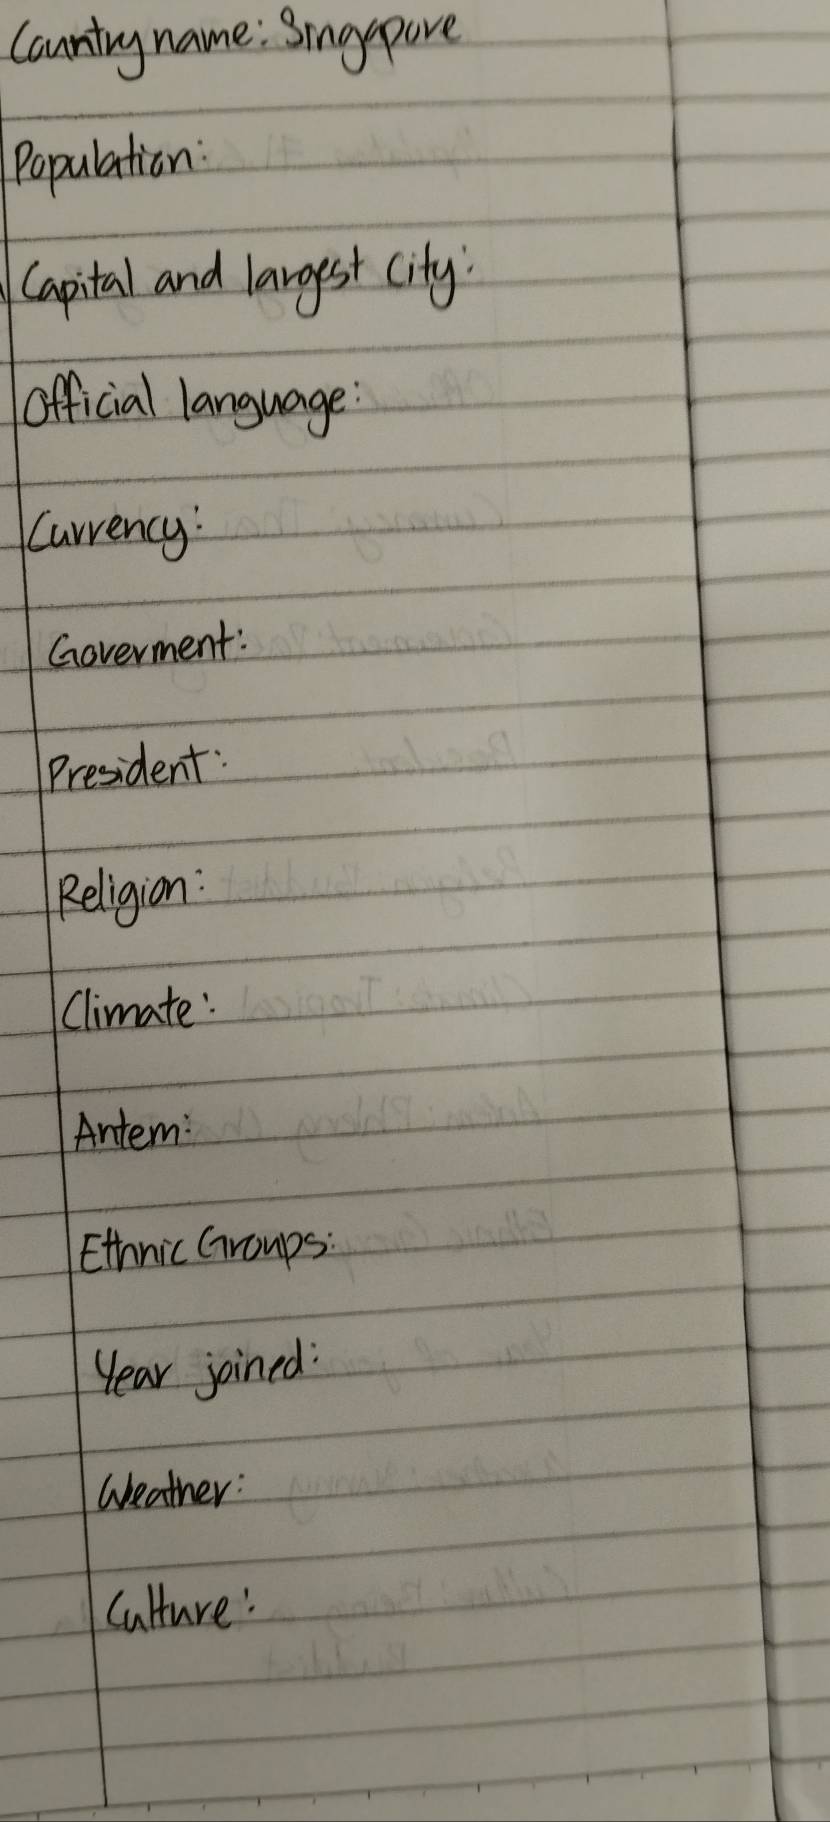 Country name: Singapore
Population:
Capital and largest city:
Official language:
Currency:
Goverment:
President:
Religion:
Climate:
Antem:
Ethnic Groups:
Year joined:
Weather:
Culture: